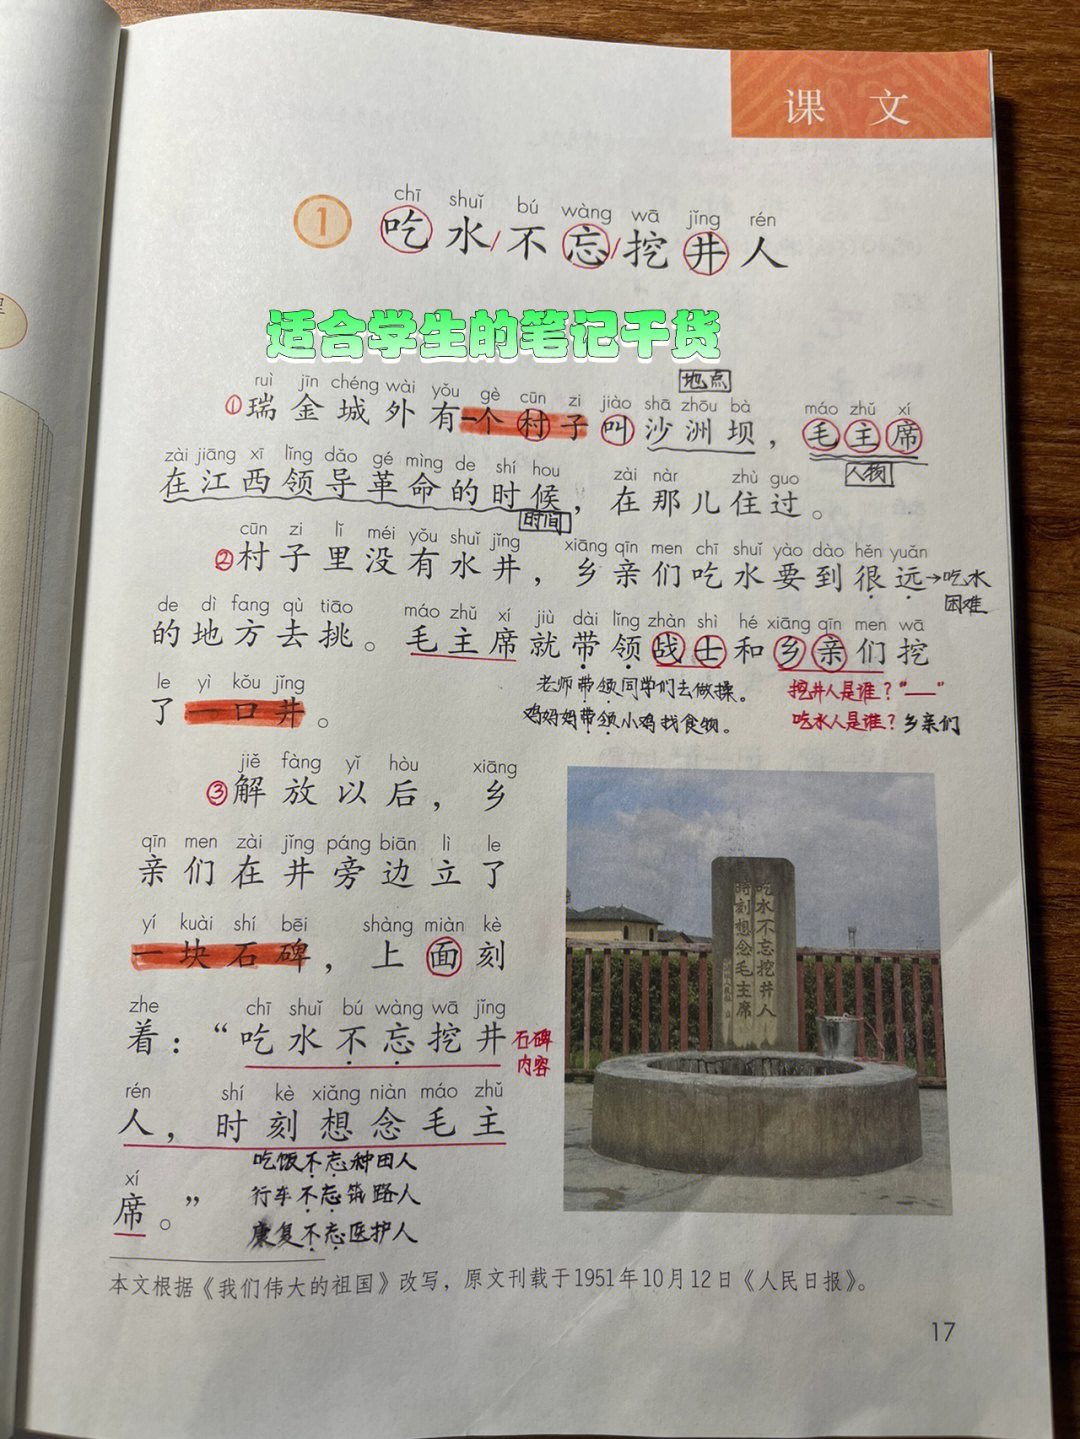 课 文
chī shuǐ bú wàng wā jǐng rén
1 吃水/不忘/挖井人
适合学生的笔记干货
地点
ruì jīn chéng wài yǒu gè cūn zi jiào shā zhōu bà máo zhǔ xí
①瑞金城外有一个村子叫沙洲坝，毛主席
人物
zài jiāng xī lǐng dǎo gé mìng de shí hou zài nàr zhù guo
在江西领导革命的时候，在那儿住过。
时间
cūn zi lǐ méi yǒu shuǐ jǐng xiāng qīn men chī shuǐ yào dào hěn yuǎn
②村子里没有水井，乡亲们吃水要到很远→吃水
困难
de dì fang qù tiāo máo zhǔ xí jiù dài lǐng zhàn shì hé xiāng qīn men wā
的地方去挑。毛主席就带领战士和乡亲们挖
le yì kǒu jǐng
了一口井。
老师带领同学们去做操。
鸡妈妈带领小鸡找食物。
挖井人是谁？“——”
吃水人是谁？乡亲们
jiě fàng yǐ hòu xiāng
③解放以后，乡
qīn men zài jǐng páng biān lì le
亲们在井旁边立了
yí kuài shí bēi shàng miàn kè
一块石碑，上面刻
zhe chī shuǐ bú wàng wā jǐng
着：“吃水不忘挖井
石碑
内容
rén shí kè xiǎng niàn máo zhǔ
人，时刻想念毛主
xí
席。”
吃饭不忘种田人
行车不忘筑路人
康复不忘医护人
吃水不忘挖井人
时刻想念毛主席
本文根据《我们伟大的祖国》改写，原文刊载于1951年10月12日《人民日报》。
17